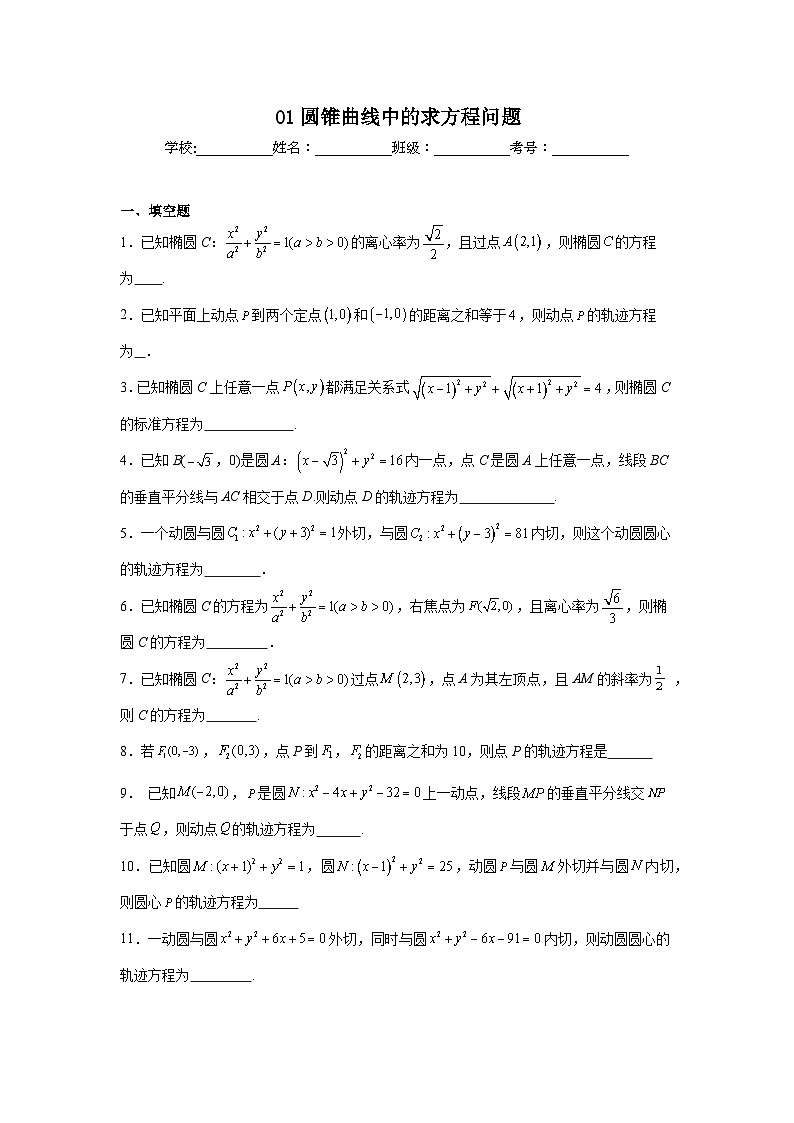 01 圆锥曲线中的求方程问题
学校:___________姓名：___________班级：___________考号：___________
一、填空题
1．已知椭圆 C：x²/a² + y²/b² = 1(a > b > 0) 的离心率为 √2/2，且过点 A(2,1)，则椭圆 C 的方程
为____.
2．已知平面上动点 P 到两个定点 (1,0) 和 (−1,0) 的距离之和等于 4，则动点 P 的轨迹方程
为_．
3.已知椭圆 C 上任意一点 P(x,y) 都满足关系式 √((x−1)² + y²) + √((x+1)² + y²) = 4，则椭圆 C
的标准方程为_____________.
4．已知 B(−√3，0)是圆 A：(x−√3)² + y² = 16 内一点，点 C 是圆 A 上任意一点，线段 BC
的垂直平分线与 AC 相交于点 D.则动点 D 的轨迹方程为______________.
5．一个动圆与圆 C₁ : x² + (y+3)² = 1 外切，与圆 C₂ : x² + (y−3)² = 81 内切，则这个动圆圆心
的轨迹方程为________．
6．已知椭圆 C 的方程为 x²/a² + y²/b² = 1(a > b > 0)，右焦点为 F(√2,0)，且离心率为 √6/3，则椭
圆 C 的方程为_________．
7．已知椭圆 C：x²/a² + y²/b² = 1(a > b > 0) 过点 M (2,3)，点 A 为其左顶点，且 AM 的斜率为 1/2 ，
则 C 的方程为_______.
8．若 F₁(0,−3)，F₂(0,3)，点 P 到 F₁，F₂ 的距离之和为 10，则点 P 的轨迹方程是______
9． 已知 M(−2,0)，P 是圆 N : x² − 4x + y² − 32 = 0 上一动点，线段 MP 的垂直平分线交 NP
于点 Q，则动点 Q 的轨迹方程为______.
10．已知圆 M : (x+1)² + y² = 1，圆 N : (x−1)² + y² = 25，动圆 P 与圆 M 外切并与圆 N 内切，
则圆心 P 的轨迹方程为_____
11．一动圆与圆 x² + y² + 6x + 5 = 0 外切，同时与圆 x² + y² − 6x − 91 = 0 内切，则动圆圆心的
轨迹方程为_________.